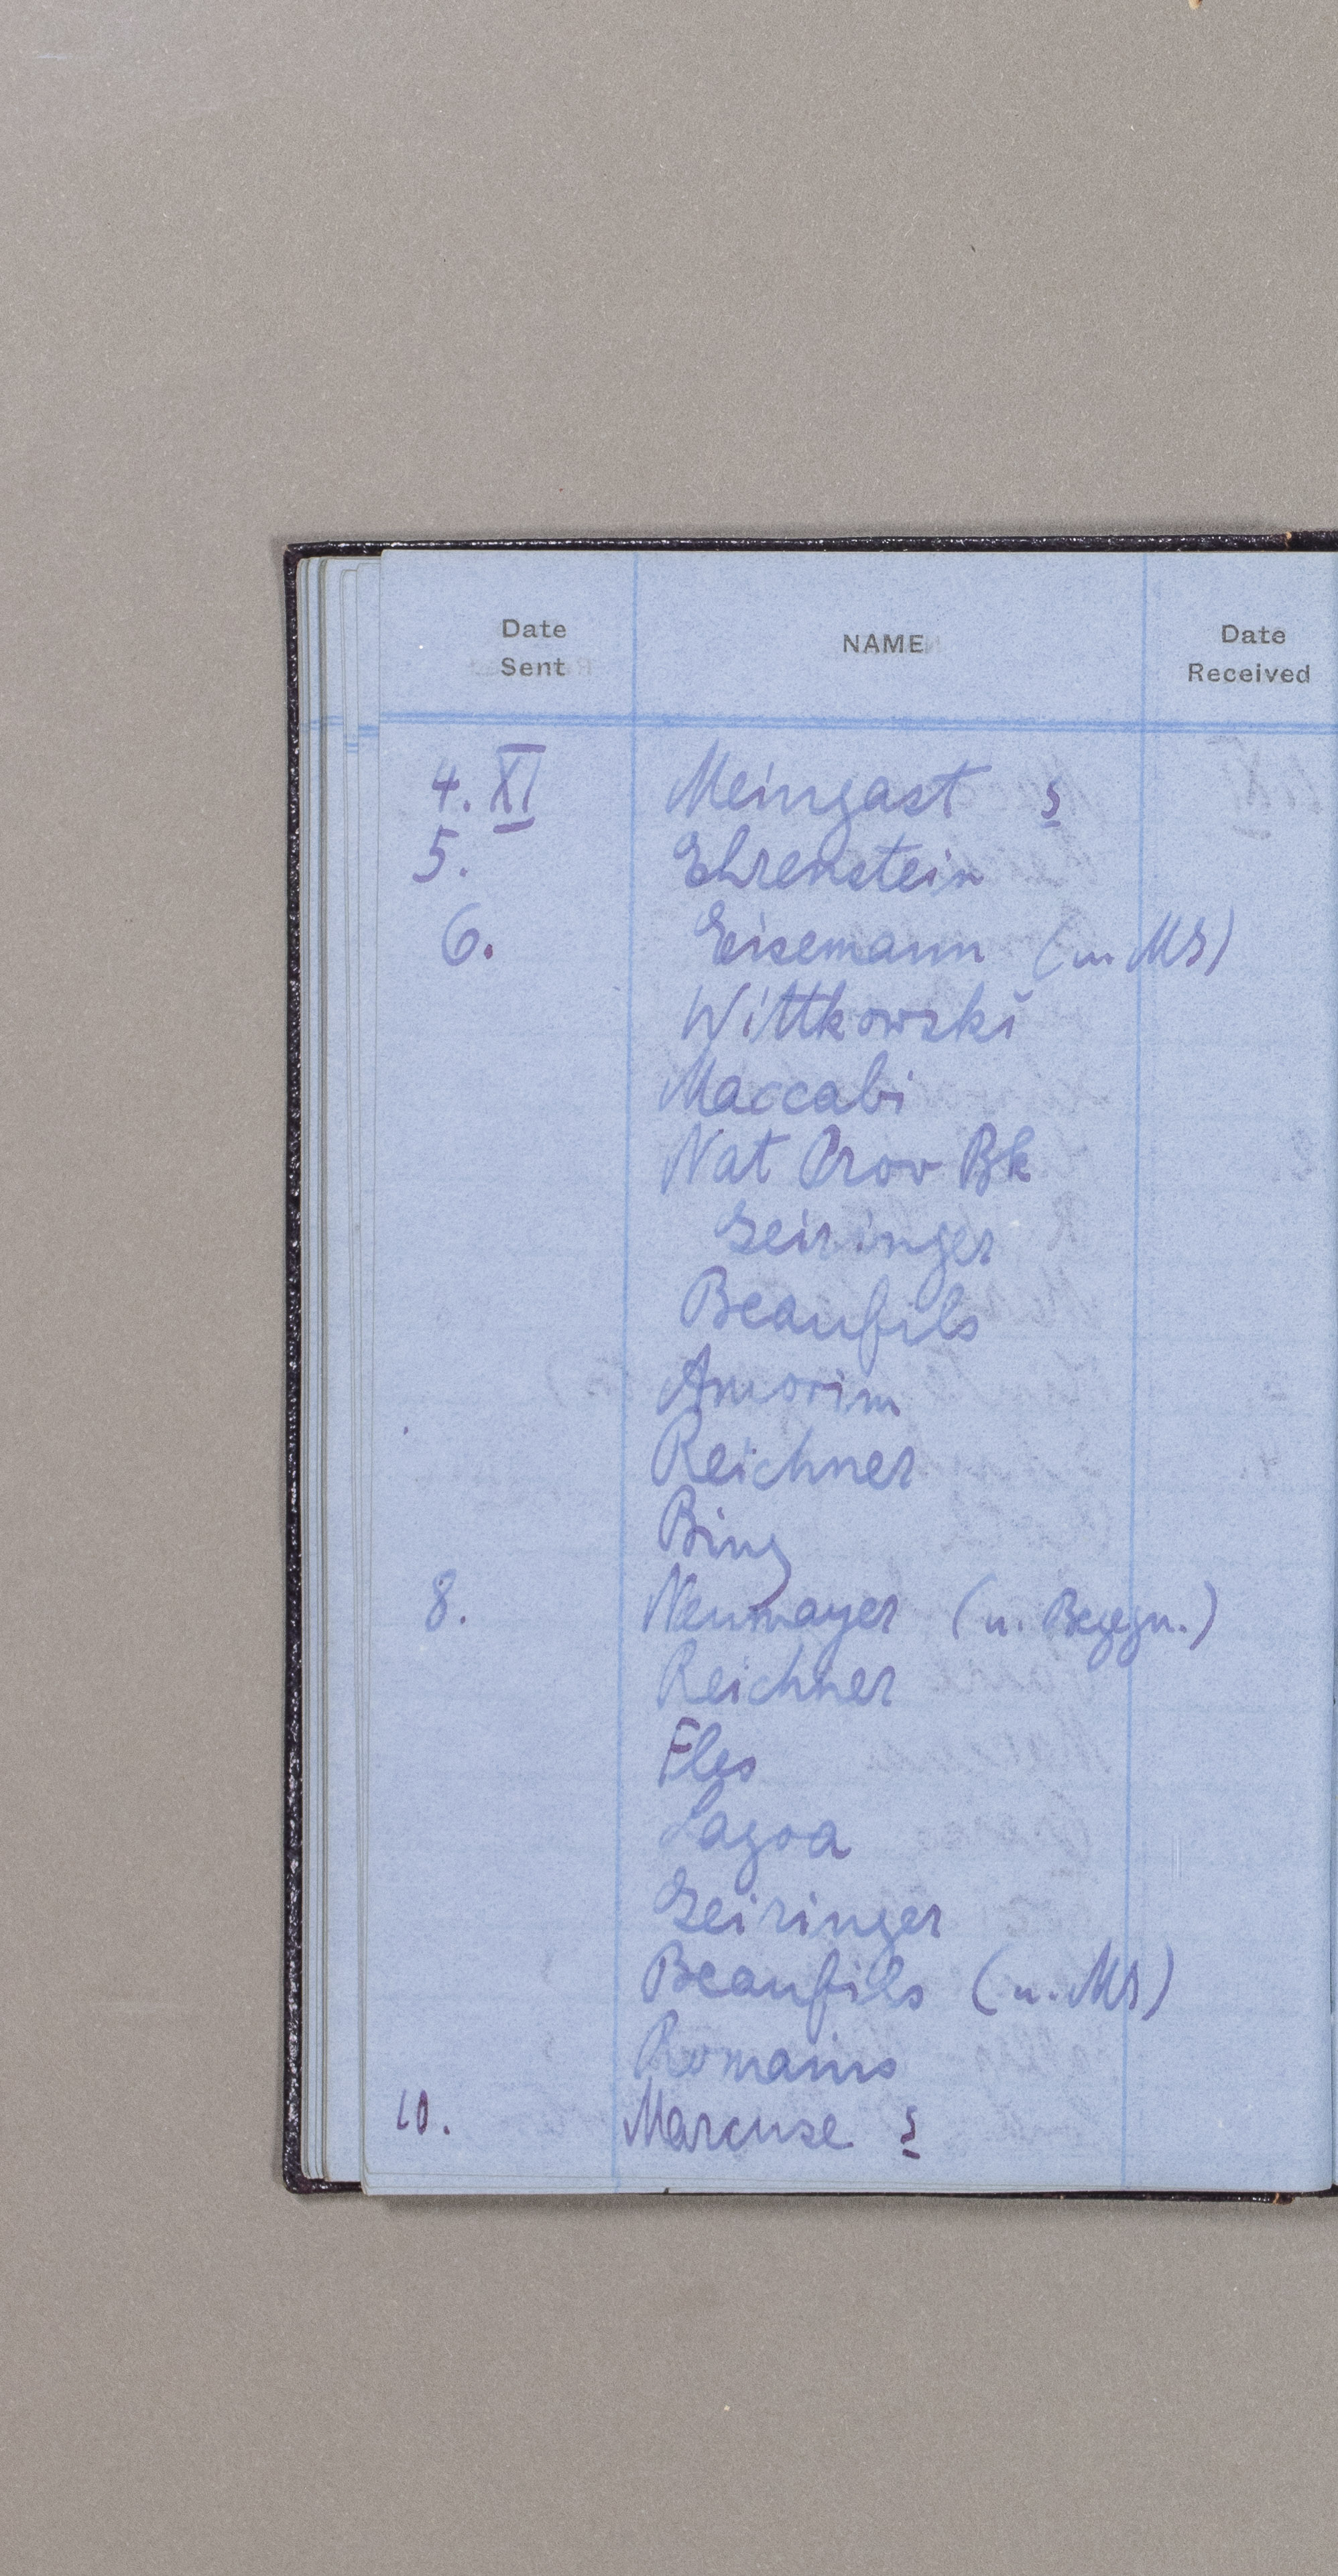 Date Sent NAME Date Received
4. XI Meingast s
5. Ehrenstein
6. Eisemann (u. MS)
Wittkowski
Maccabi
Nat Prov Bk
Geiringer
Beaufils
Amorim
Reichner
Bing
8. Neumayer (u. Begegn.)
Reichner
Fles
Lagoa
Geiringer
Beaufils (u. MS)
Romains
10. Marcuse s